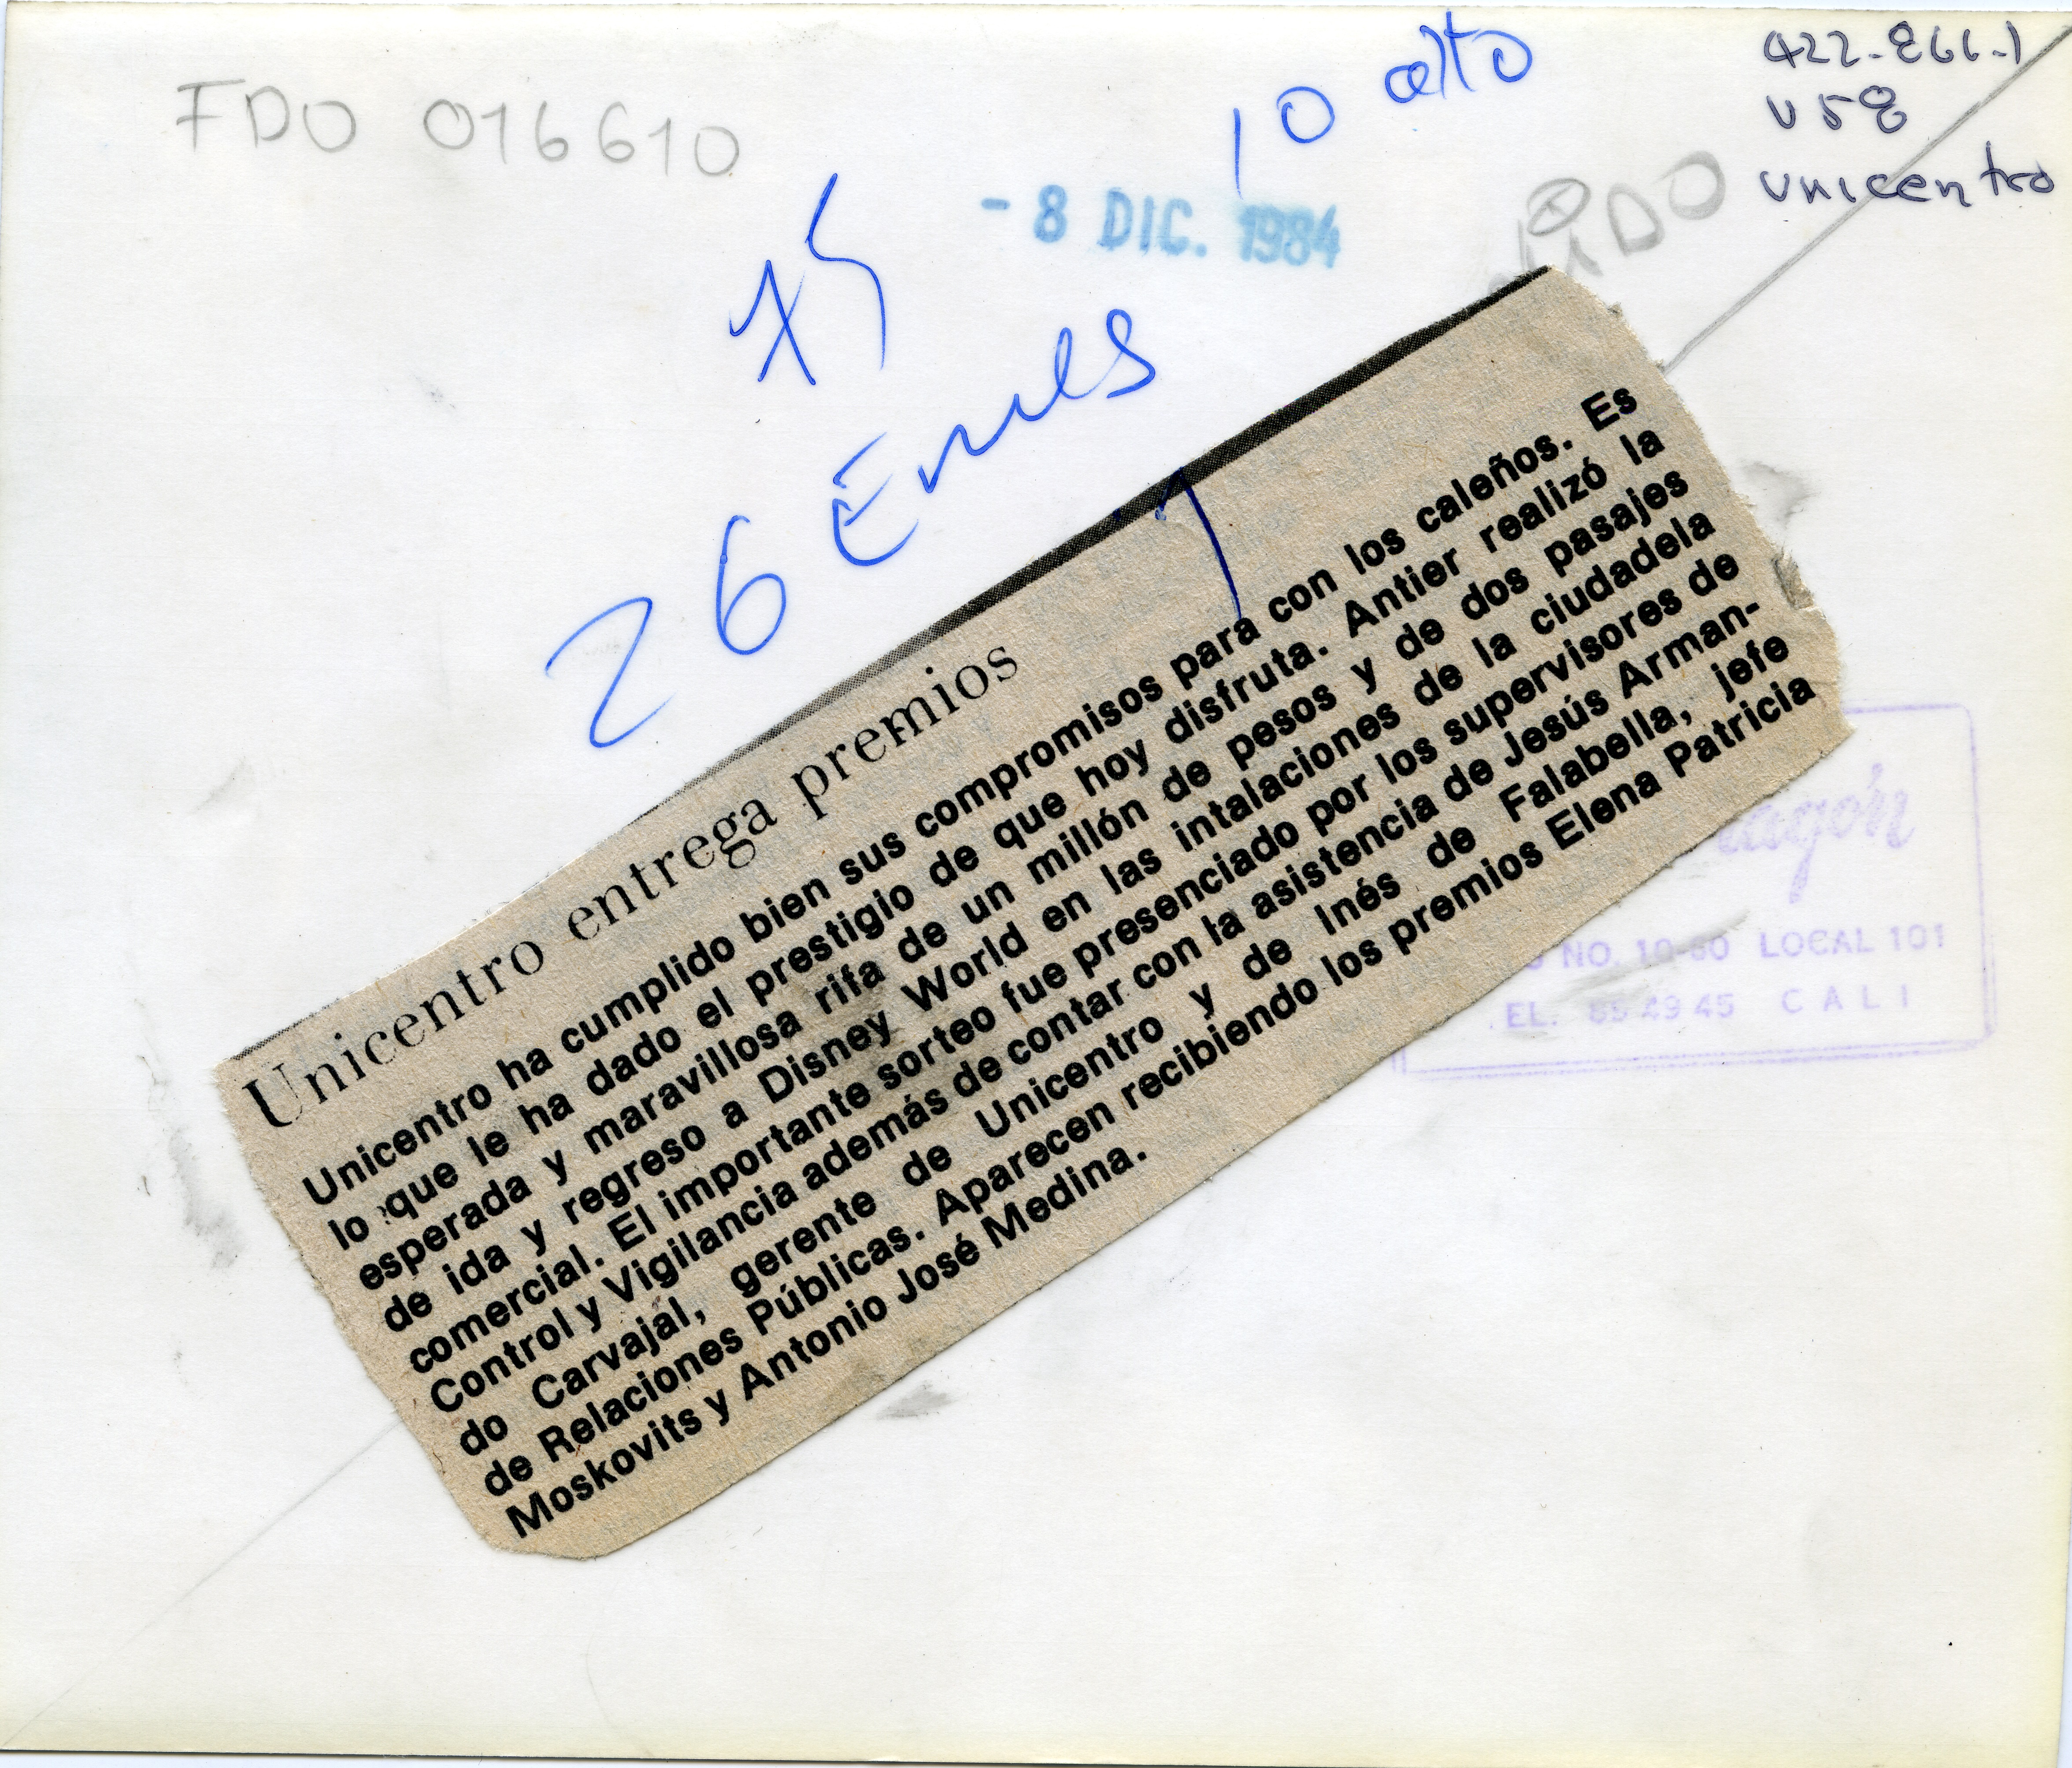 422-866-1
U58
unicentro
10 alto
FDO 016610
- 8 DIC. 1984
75
26 Emes
Unicentro entrega premios
Unicentro ha cumplido bien sus compromisos para con los caleños. Es
lo que le ha dado el prestigio de que hoy disfruta. Antier realizó la
esperada y maravillosa rifa de un millón de pesos y de dos pasajes
de ida y regreso a Disney World en las intalaciones de la ciudadela
comercial. El importante sorteo fue presenciado por los supervisores de
Control y Vigilancia además de contar con la asistencia de Jesús Arman-
do Carvajal, gerente de Unicentro y de Inés de Falabella, jefe
de Relaciones Públicas. Aparecen recibiendo los premios Elena Patricia
Moskovits y Antonio José Medina.
NO. 10-60 LOCAL 101
EL. 85 49 45 CALI